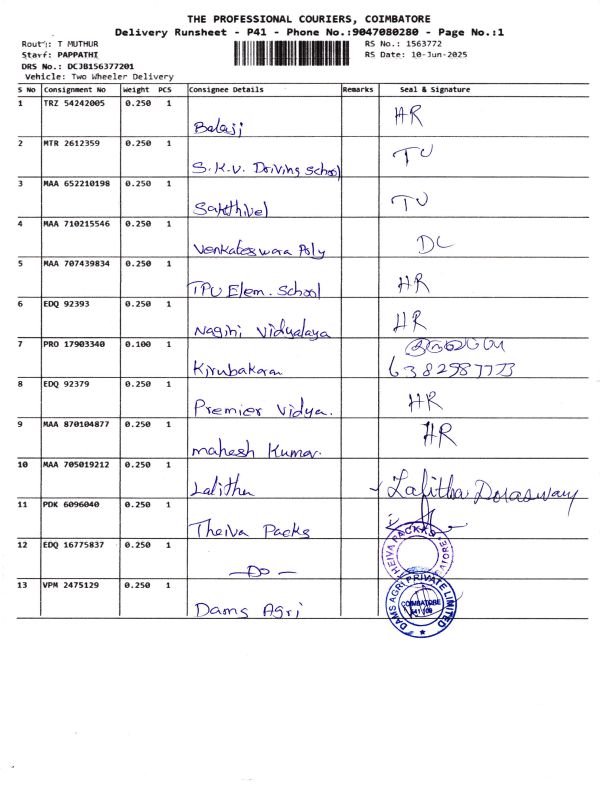 THE PROFESSIONAL COURIERS, COIMBATORE
Delivery Runsheet - P41 - Phone No.:9047080280 - Page No.:1
Route: T MUTHUR
RS No.: 1563772
Staff: PAPPATHI
RS Date: 10-Jun-2025
DRS No.: DCJB156377201
Vehicle: Two Wheeler Delivery
S No Consignment No Weight PCS Consignee Details Remarks Seal & Signature
1 TRZ 54242005 0.250 1 Balaji HR
2 MTR 2612359 0.250 1 S.K.V. Driving School TU
3 MAA 652210198 0.250 1 Sakthivel TU
4 MAA 710215546 0.250 1 Venkateswara Poly DC
5 MAA 707439834 0.250 1 TPU Elem. School HR
6 EDQ 92393 0.250 1 Nagini Vidyalaya HR
7 PRO 17903340 0.100 1 Kirubakaran 6382987773
8 EDQ 92379 0.250 1 Premier Vidya. HR
9 MAA 870104877 0.250 1 Mahesh Kumar. HR
10 MAA 705019212 0.250 1 Lalitha Lalitha Doraswamy
11 PDK 6096040 0.250 1 Theiva Packs
12 EDQ 16775837 0.250 1 -Do- THEIVA PACKS
13 VPM 2475129 0.250 1 Dams Agri DAMS AGRI PRIVATE LIMITED
COIMBATORE
641 109